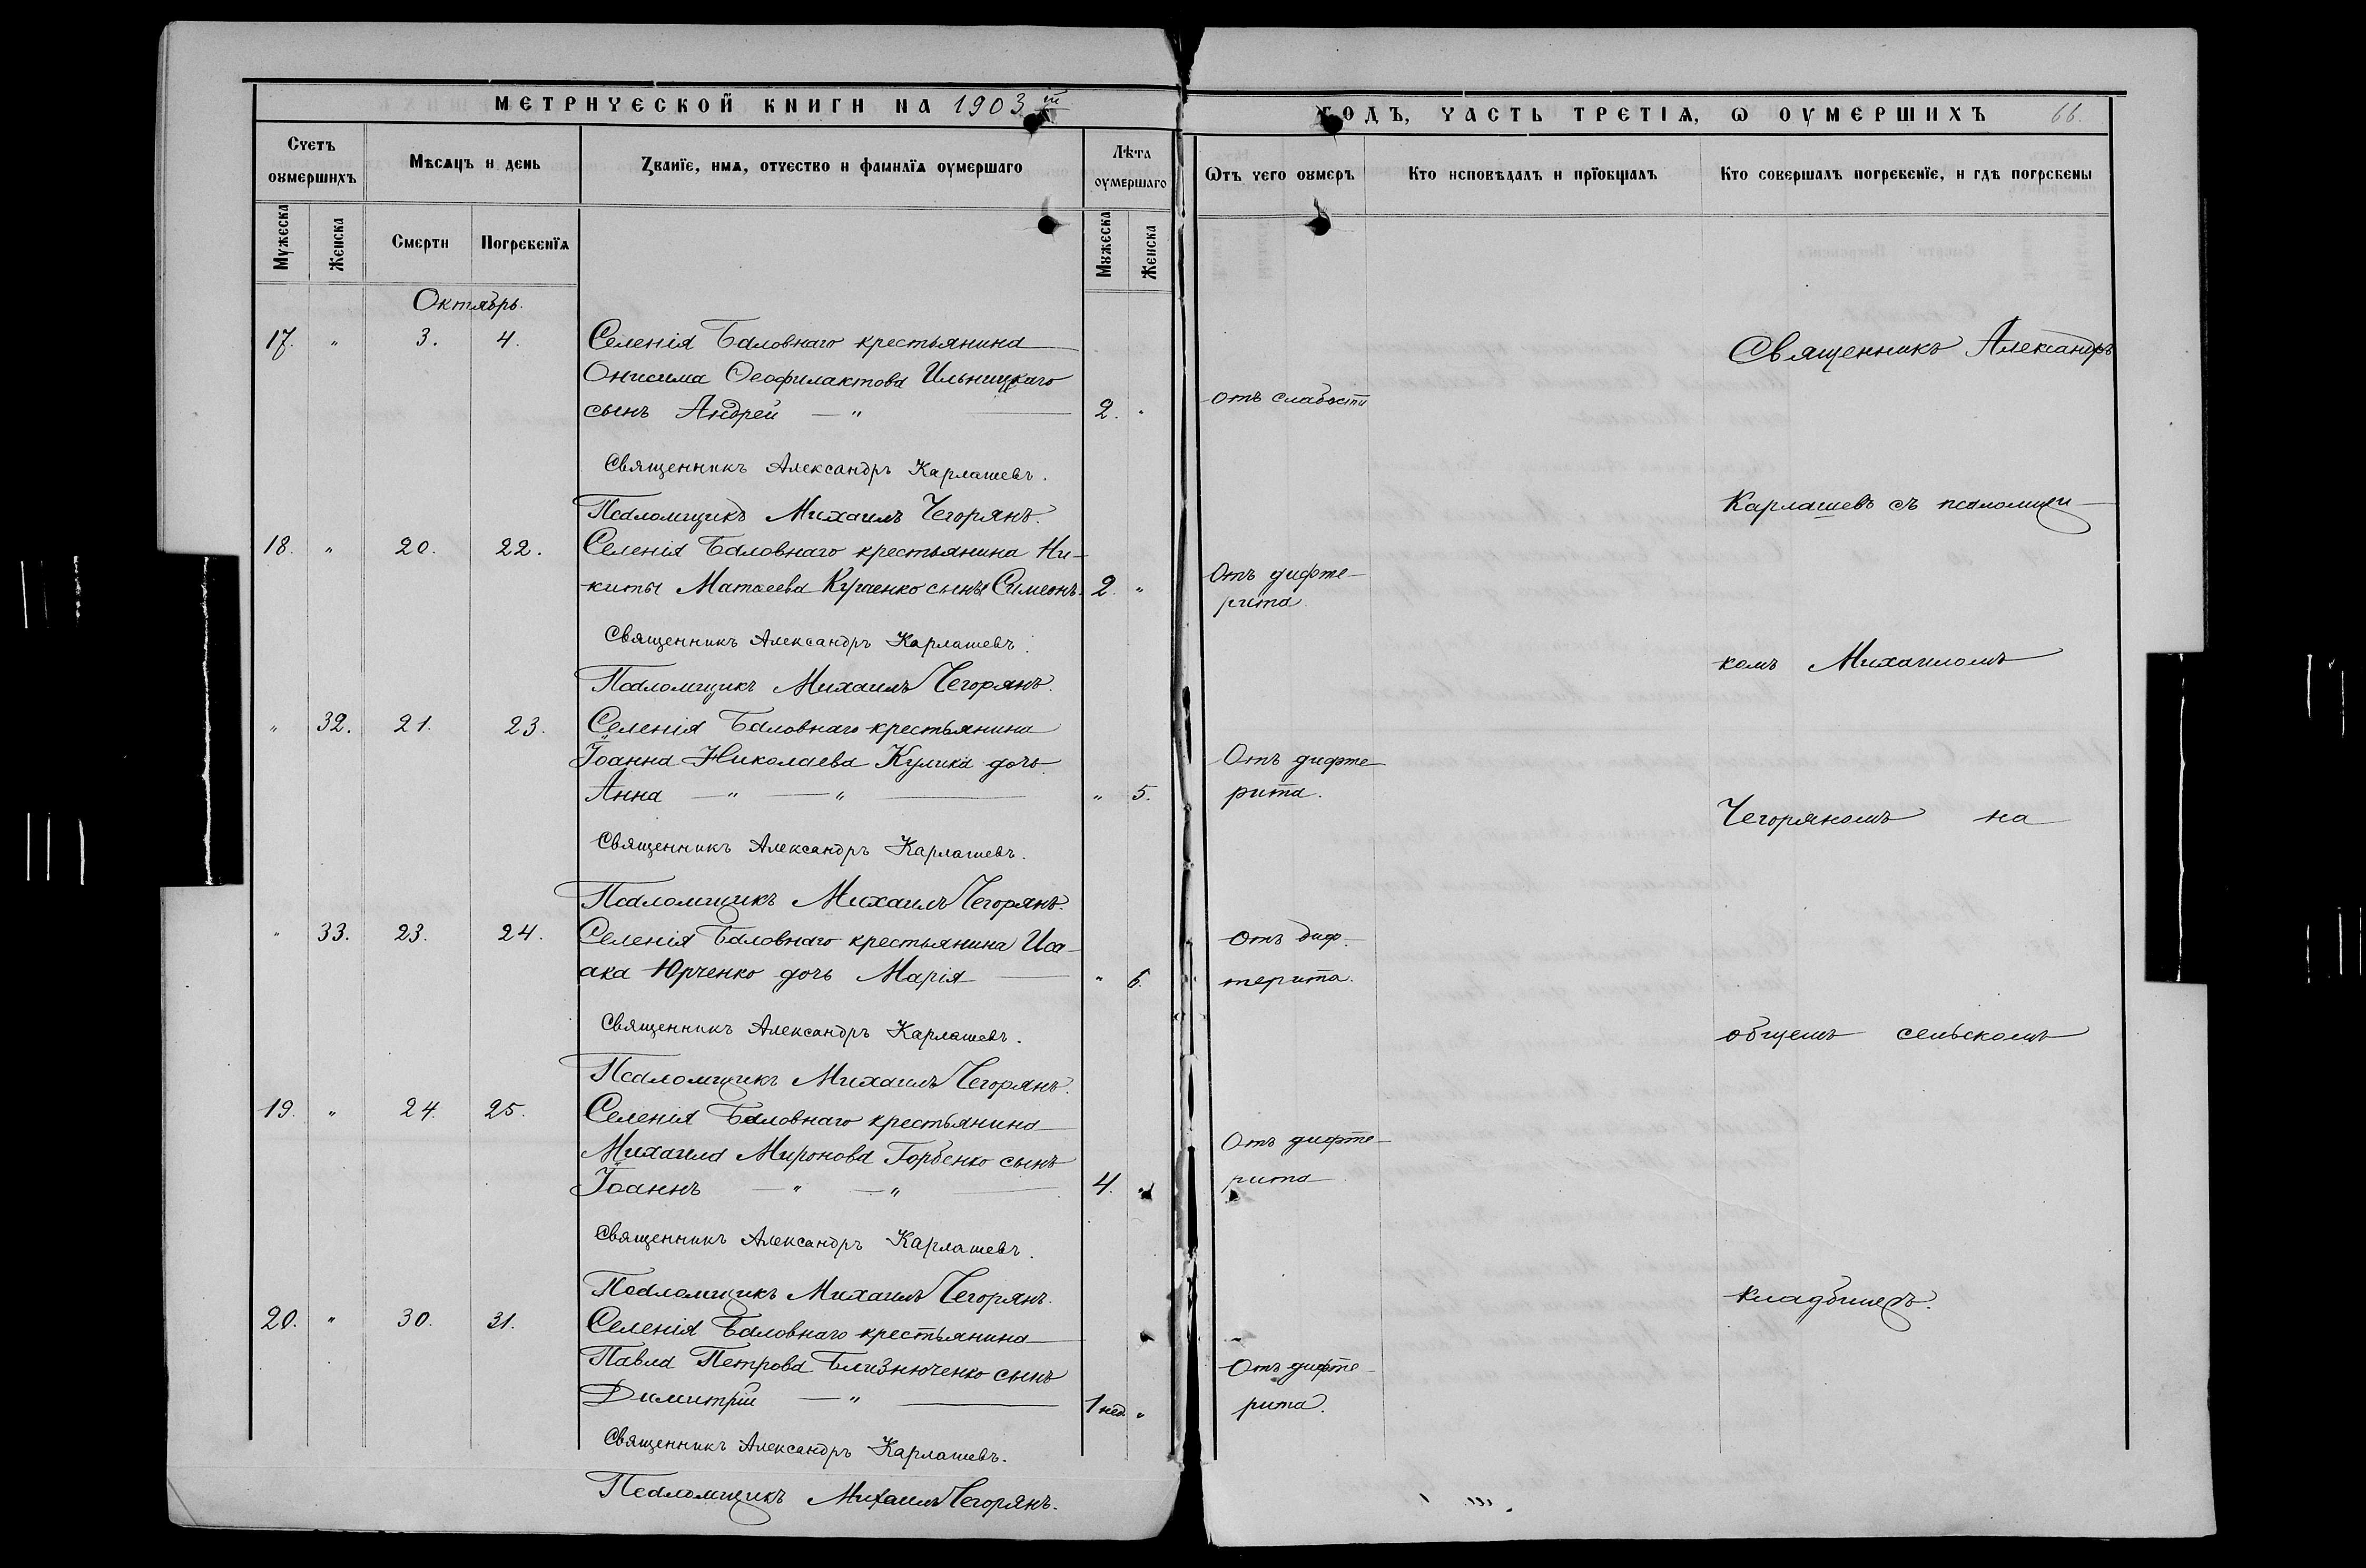 МЕТРИЧЕСКОЙ КНИГИ НА 1903 й
ГОДЪ, ЧАСТЬ ТРЕТІѦ, Ѡ ОУМЕРШИХЪ 66.
Счетъ оумершихъ
Мѣсѧцъ и день
Званїе, имѧ, отчество и фамилїѧ оумершаго
Лѣта оумершаго
Ѿтъ чего оумеръ
Кто исповѣдалъ и прїобщалъ
Кто совершалъ погребенїе, и гдѣ погребены
Мужеска
Женска
Смерти
Погребенїѧ
Мужеска
Женска
Октябрь.
17. " 3. 4. Селенія Баловнаго крестьянина
Онисима Ѳеофилактова Ильницкаго
сынъ Андрей — " 2. " отъ слабости
Священникъ Александръ Карлашевъ.
Псаломщикъ Михаилъ Чегорянъ.
18. " 20. 22. Селенія Баловнаго крестьянина Ни-
киты Матѳеева Куценко сынъ Симеонъ. 2. " Отъ дифте-
рита.
Священникъ Александръ Карлашевъ.
Псаломщикъ Михаилъ Чегорянъ.
" 32. 21. 23. Селенія Баловнаго крестьянина
Іоанна Николаева Кулика дочь
Анна — " — " " 5. Отъ дифте
рита.
Священникъ Александръ Карлашевъ.
Псаломщикъ Михаилъ Чегорянъ.
" 33. 23. 24. Селенія Баловнаго крестьянина Иса-
ака Юрченко дочь Марія — " 6. Отъ диф-
терита.
Священникъ Александръ Карлашевъ.
Псаломщикъ Михаилъ Чегорянъ.
19. " 24. 25. Селенія Баловнаго крестьянина
Михаила Миронова Горбенко сынъ
Іоаннъ — " — " 4. " Отъ дифте-
рита
Священникъ Александръ Карлашевъ.
Псаломщикъ Михаилъ Чегорянъ.
20. " 30. 31. Селенія Баловнаго крестьянина
Павла Петрова Близнюченко сынъ
Димитрій — " 1 нед. " Отъ дифте-
рита.
Священникъ Александръ Карлашевъ.
Псаломщикъ Михаилъ Чегорянъ.
Священникъ Александръ
Карлашевъ съ псаломщи-
комъ Михаиломъ
Чегоряномъ на
общемъ сельскомъ
кладбищѣ.